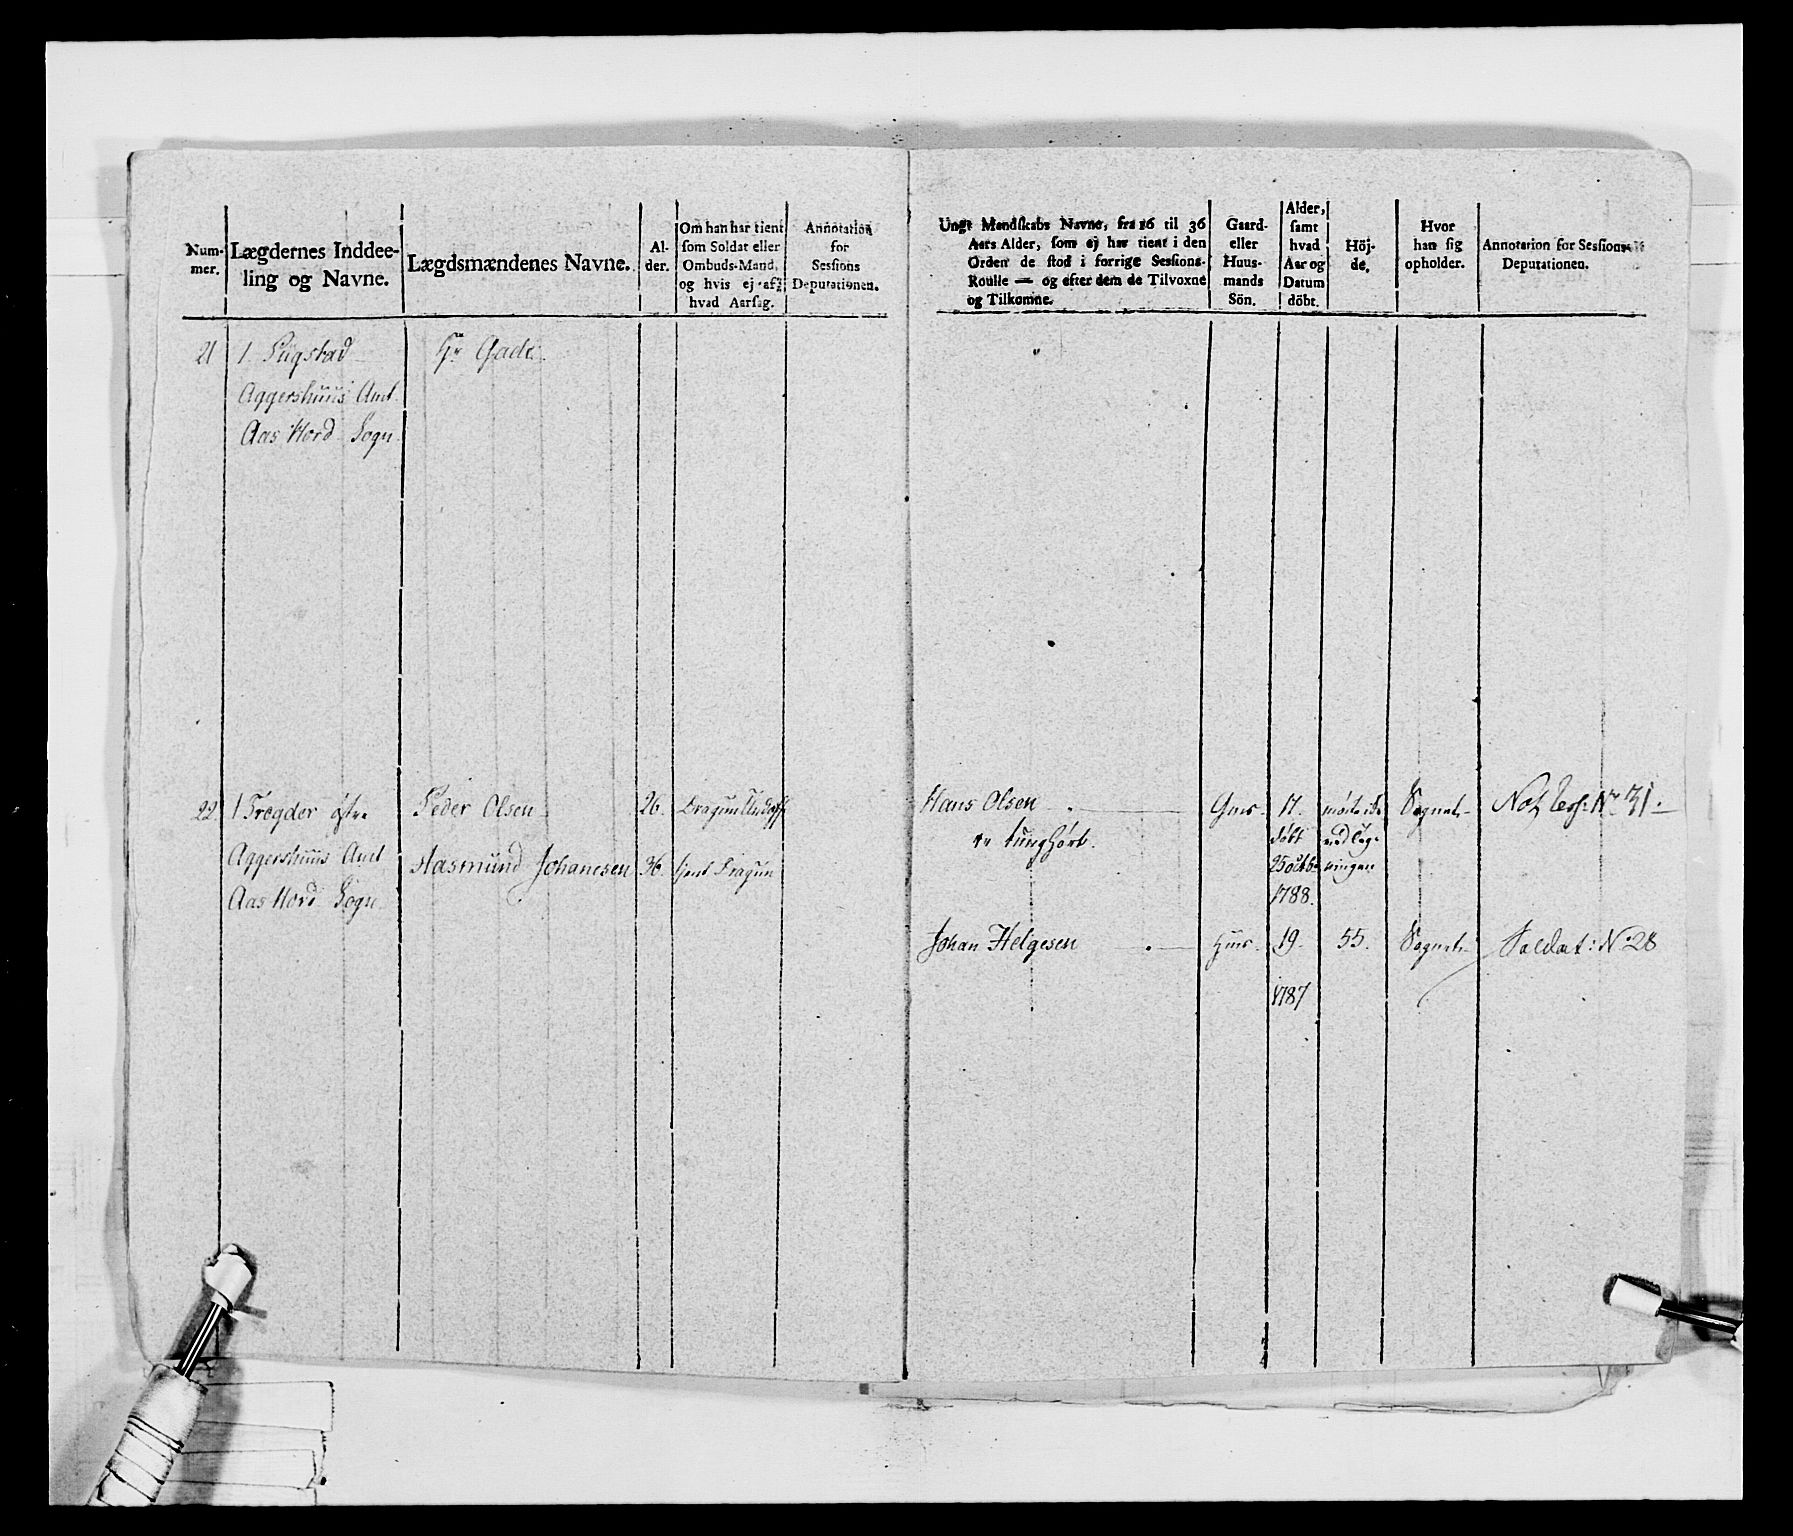 Num-
mer.
Lægdernes Inddee-
ling og Navne.
Lægdsmændenes Navne.
Al-
der.
Om han har tient
som Soldat eller
Ombuds-Mand,
og hvis ej, af
hvad Aarsag.
Annotation
for
Sessions
Deputationen.
21
1. Sügstad
Aggershuus Amt.
Aas Hord Sogn.
Hr Gade.
22
1 Træder østre
Aggershuus Amt
Aas Hord Sogn
Peder Olsen
26.
Dragun
Aasmund Johanesen
36.
tjent Dragun
Ungt Mandskabs Navne, fra 16 til 36
Aars Alder, som ej har tient i den
Orden de stod i forrige Sessions-
Roulle — og efter dem de Tilvoxne
og Tilkomne.
Gaard-
eller
Huus-
mands
Sön.
Alder,
samt
hvad
Aar og
Datum
döbt.
Höj-
de.
Hvor
han sig
opholder.
Annotation for Sessions-
Deputationen.
"
Hans Olsen
er tunghört.
Gms.
17.
döbt
25 octbr
1788.
mödte ide
ved læg-
ningen
Sognet
No 31.
Johan Helgesen
Hms.
19.
1787
55.
Sognet
Soldat: No 28